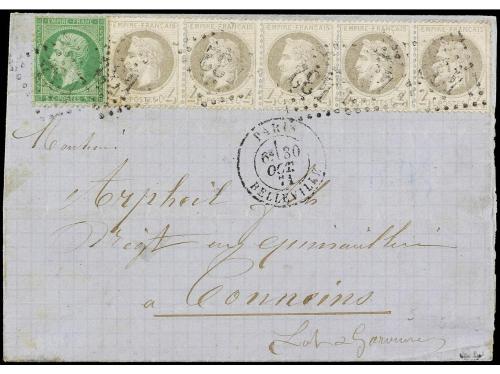 EMPIRE FRANC. EMPIRE FRANÇAIS EMPIRE FRANÇAIS EMPIRE FRANÇAIS EMPIRE FRANÇAIS EMPIRE FRANÇAIS
PARIS
30
OCT.
71
BELLEVILLE
Monsieur
Négt en quincaillerie
a Tonneins
Lot & Garonne